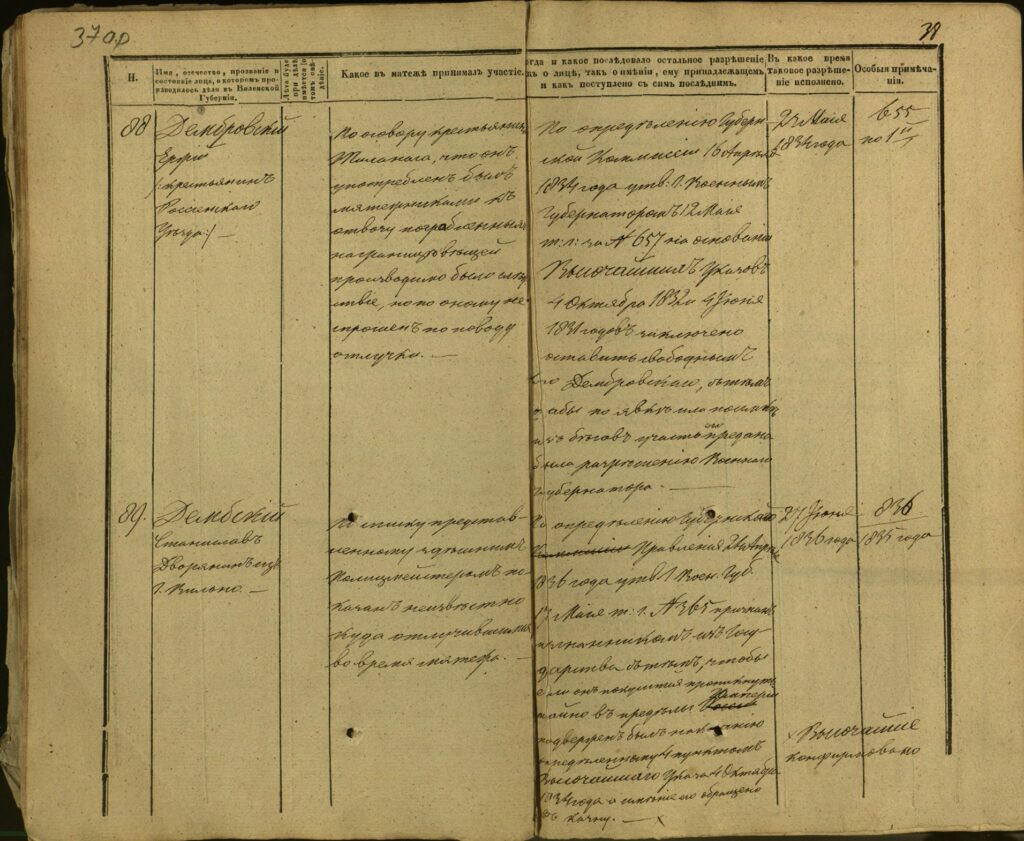 37 об
38
Н.
Имя, отечество, прозваніе и
состояніе лица, о которомъ про-
изводилось дѣло въ Виленской
Губерніи.
Какое въ мятежѣ принималъ участіе.
огда и какое послѣдовало остальное разрѣшеніе
къ о лицѣ, такъ о имѣніи, ему принадлежащемъ,
и какъ поступлено съ симъ послѣднимъ.
Въ какое время
таковое разрѣше-
ніе исполнено.
Особыя примѣча-
нія.
88
Дембровскій
(:крестьянинъ
Россіенскаго
Уѣзда:) —
По оговору крестьянина
что онъ
употребленъ былъ
мятежниками къ
отвозу пограбленныхъ
производимо было слѣд-
ствіе, но по оному не
спрошенъ по поводу
отлучки. —
По опредѣленію Губерн-
ской Коммиссіи 16 Апрѣля
1834 года утв: Г. Военнымъ
Губернаторомъ 12 Маія
т: г: за № 657 на основаніи
Высочайшихъ Указовъ
4 Октября 1832 и 4 Іюня
годовъ заключено
оставить свободнымъ
Дембровскаго, съ тѣмъ
абы по явкѣ или поимкѣ
изъ бѣговъ участь его предана
была разрѣшенію Военнаго
Губернатора. —
Маія
1834 года
655
по 1й
89.
Дембскій
Станиславъ
Дворянинъ изъ
г. Вильно. —
По списку представ-
ленному здѣшнимъ
Полицмейстеромъ по-
казанъ неизвѣстно
куда отлучившимся
во время мятежа. —
По опредѣленію Губернскаго
Правленія Апрѣля
1836 года утв. Г. Воен. Губ.
Маія т: г. № 365 признанъ
изгнанникомъ изъ Госу-
дарства съ тѣмъ, чтобы
если онъ покусится проникнуть
тайно въ предѣлы Имперіи
подверженъ былъ наказанію
опредѣленному 4 пунктомъ
Высочайшаго Указа 4 Октября
года а имѣніе его обращено
въ казну. — х
27 Іюня
1836 года
836
1835 года
х Высочайше
конфирмовано